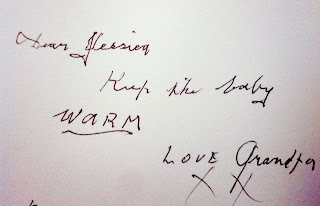 Dear Jessica
Keep the baby
WARM
LOVE Grandpa
X X